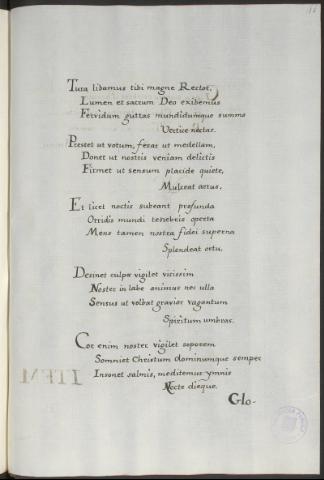 Tura libamus tibi magne Rector,
Lumen et sacrum Deo exibemus
Fervidum guttas mundidumque summo
Vertice nectas.
Prestet ut votum, ferat ut medellam,
Donet ut nostris veniam delictis
Firmet ut sensum placide quiete,
Mulceat artus.
Et licet noctis subeant profunda
Orridis mundi tenebris operta
Mens tamen nostra fidei superna
Splendeat ortu.
Desinet culpae vigilet vicissim
Noster in labe animus nec ulla
Sensus ut volbat gravior vagantum
Spirituum umbras.
Cor enim noster vigilet soporem
Somniet Christum dominumque semper
Insonet salmis, meditemur ymnis
Nocte dieque.
Glo-
ITEM